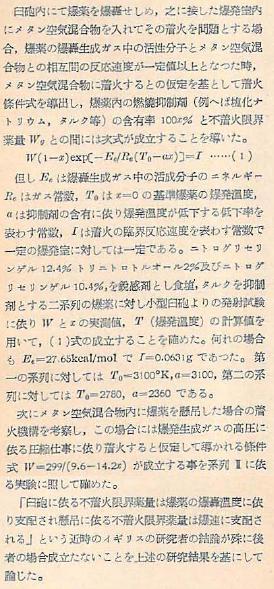 臼砲内にて爆薬を爆轟せしめ，之に接した爆発室内
にメタン空気混合物を入れてその着火を問題とする場
合，爆薬の爆轟生成ガス中の活性分子とメタン空気混
合物との相互間の反応速度が一定値以上となつた時，
メタン空気混合物に着火するとの仮定を基として着火
条件式を導出し，爆薬内の燃焼抑制剤（例へば塩化ナ
トリウム，タルク等）の含有率 100x% と不着火限界
薬量 Wg との間には次式が成立することを導いた。
W(1−x)exp[−Ee/Re(T0−ax)]=I ……(1)
但し Ee は爆轟生成ガス中の活性分子のエネルギー
Re はガス常数，T0 は x=0 の基準爆薬の爆発温度，
a は抑制剤の含有に依り爆発温度が低下する低下率を
表わす常数，I は着火の臨界反応速度を表わす常数で
一定の爆発室に対しては一定である。ニトログリセリ
ンゲル 12.4% トリニトロトルオール2%及びニトログ
リセリンゲル 10.4%,を鋭感剤とし食塩，タルクを抑制
剤とする二系列の爆薬に対す小型臼砲よりの発射試験
に依り W と x の実測値，T（爆発温度）の計算値を
用いて，(1)式の成立することを確めた。何れの場合
も Ee=27.65kcal/mol で I=0.0631g であつた。第
一の系列に対しては T0=3100°K,a=3100，第二の系
列に対しては T0=2780，a=2360 である。
次にメタン空気混合物内に爆薬を懸吊した場合の着
火機構を考察し，この場合には爆発生成ガスの高圧に
依る圧縮仕事に依り着火すると仮定して導かれる条件
式 W=299/(9.6−14.2x) が成立する事を系列 Ⅱ に依
る実験に照して確めた。
『臼砲に依る不着火限界薬量は爆薬の爆轟温度に依
り支配され懸吊に依る不着火限界薬量は爆速に支配さ
れる』という近時のイギリスの研究者の結論が殊に後
者の場合成立たないことを上述の研究結果を基にして
論じた。